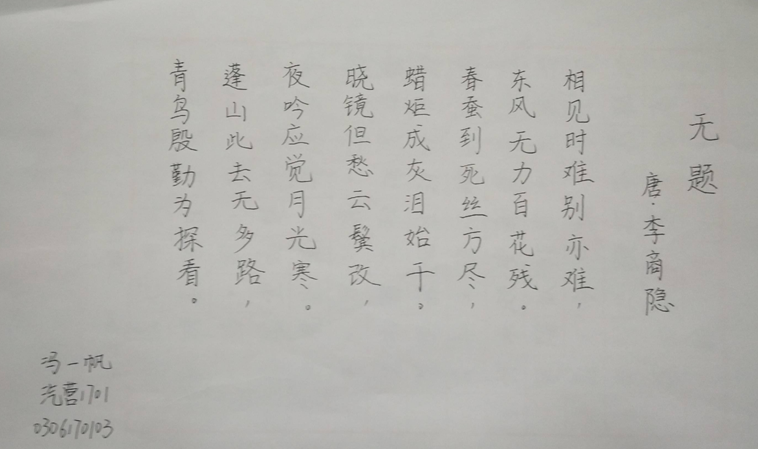 无题
唐·李商隐
相见时难别亦难，
东风无力百花残。
春蚕到死丝方尽，
蜡炬成灰泪始干。
晓镜但愁云鬓改，
夜吟应觉月光寒。
蓬山此去无多路，
青鸟殷勤为探看。
冯一帆
汽营1701
0306170103